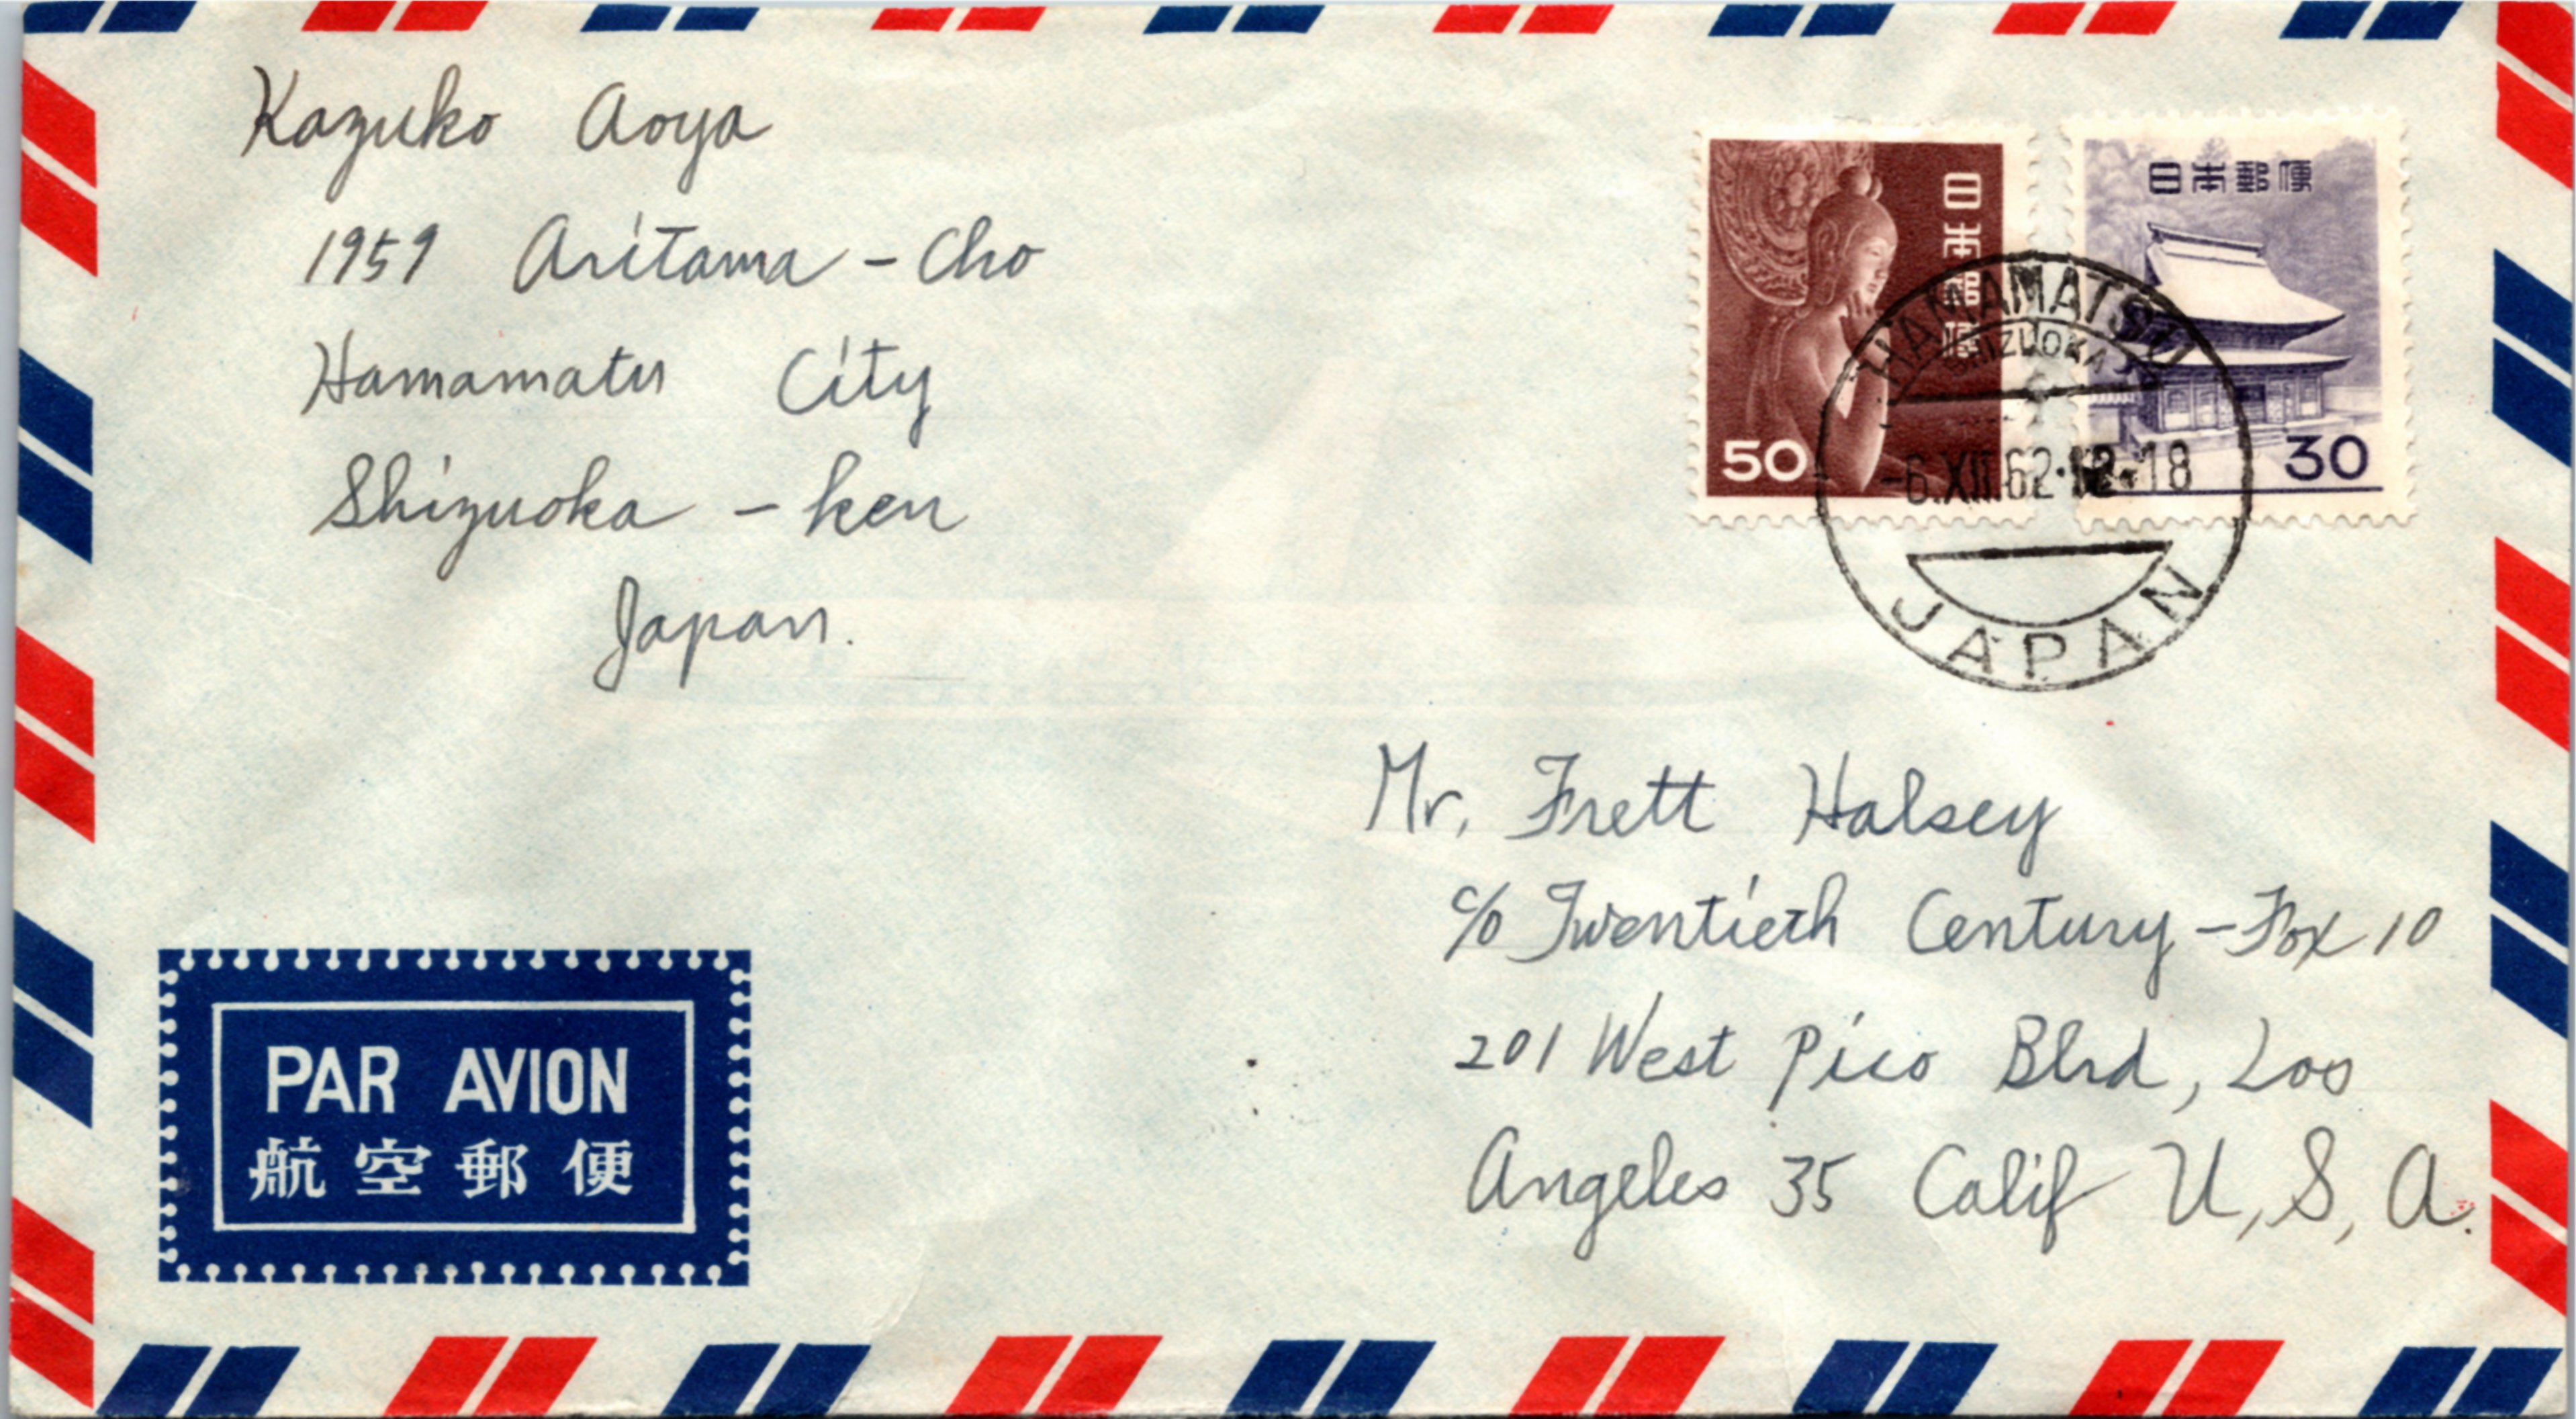 Kazuko Aoya
1959 Aritama - Cho
Hamamatu City
Shizuoka - ken
Japan.
日本郵便
50
日本郵便
30
HAMAMATSU
SHIZUOKA
-6.XII.62.12-18
JAPAN
Mr. Frett Halsey
c/o Twentieth Century - Fox 10
201 West Pico Blvd, Los
Angeles 35 Calif U, S, A.
PAR AVION
航空郵便